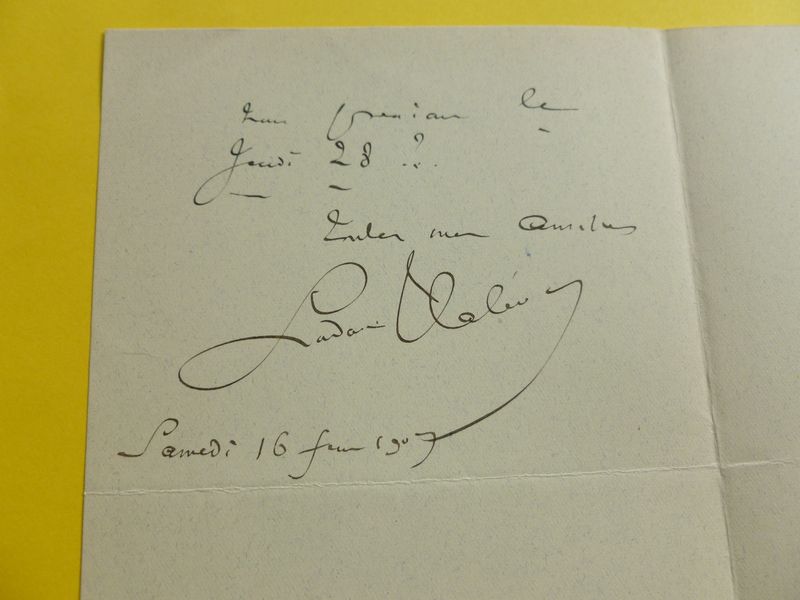 nous prenions le
Jeudi 28 ?.
Toutes mes amitiés
Ludovic Halévy
Samedi 16 fevr 1907